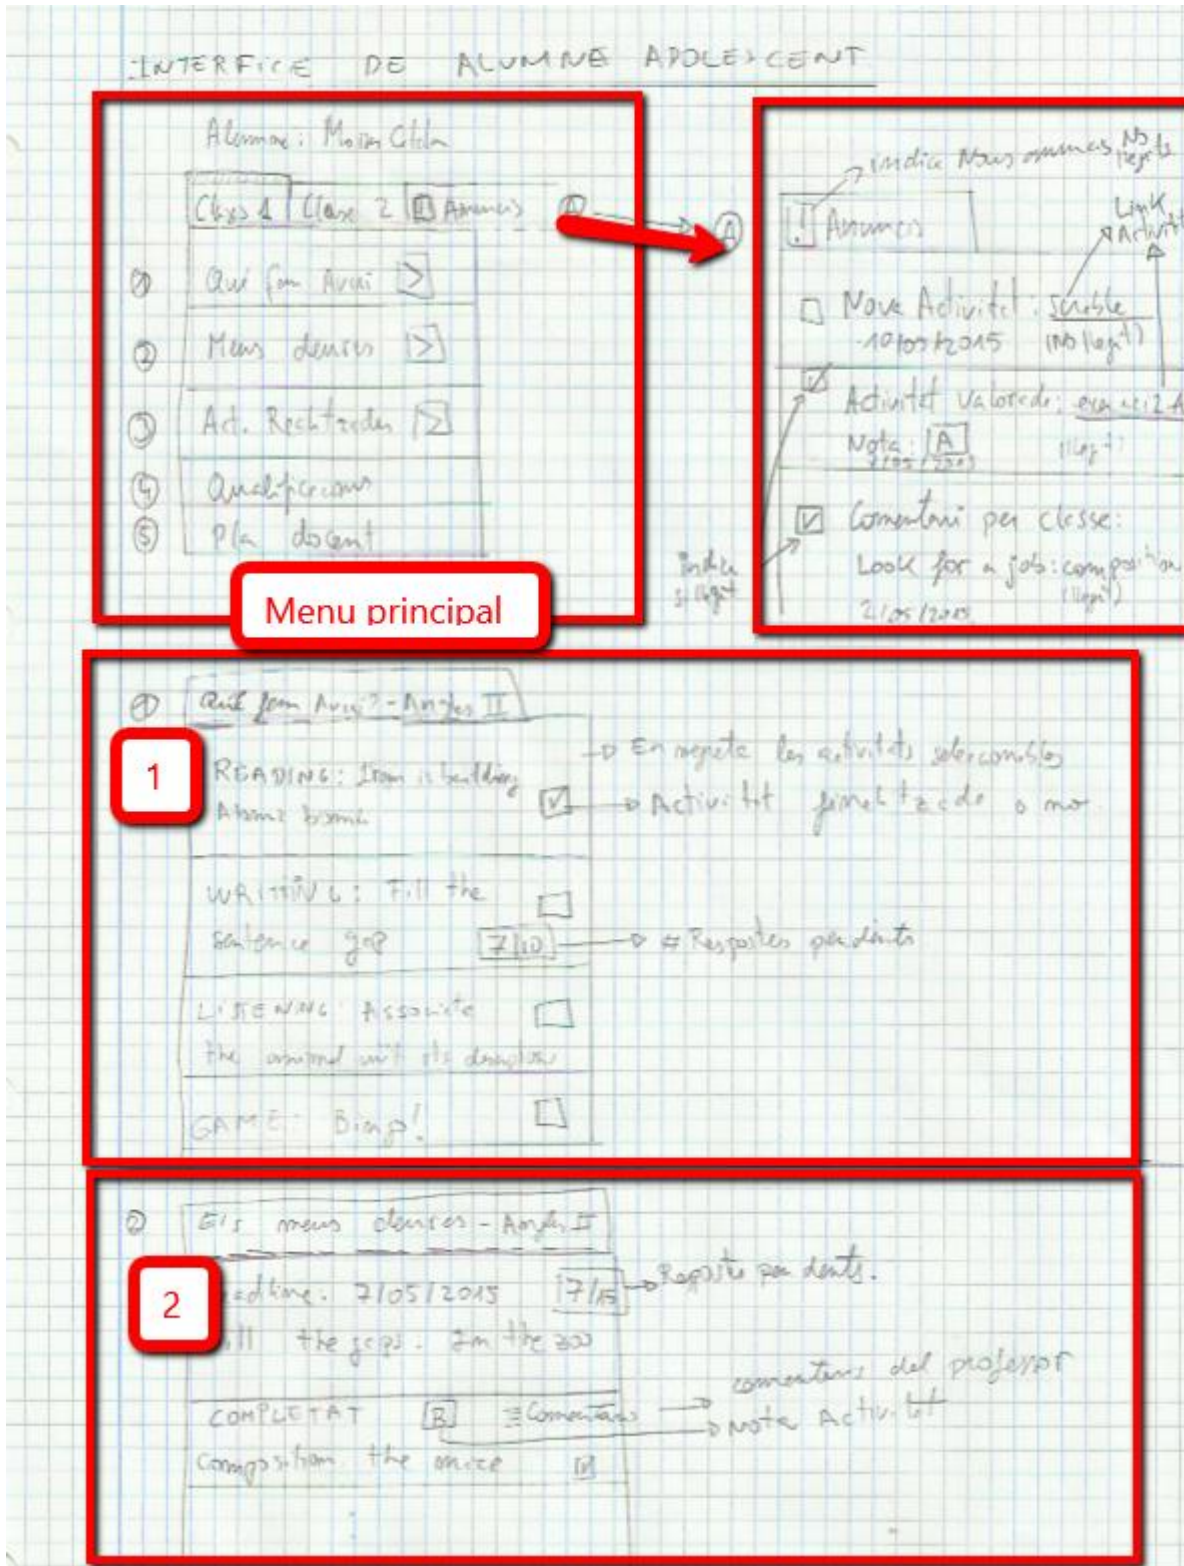 INTERFICE DE ALUMNE ADOLESCENT
Alumne:
Class 1 Classe 2 ! Anuncis A
1 Qué fem Avui >
2 Meus deures >
3 Act. >
4 Qualificacions
5 Pla docent
Menu principal
A
indica Nous anuncis No llegits
! Anuncis
Link Activit
Nova Activitat: Scrabble
10/05/2015 (No llegit)
Activitat valorada:
Nota: A (llegit)
Comentari per classe:
Look for a job: composition
(llegit)
2/05/2015
indica si llegit
1 Qué fem Avui? - Angles II
1
READING: Iran is building
Atomic bomb
En negreta les activitats seleccionables
Activitat finalitzada o no
WRITING: Fill the
sentence gap 7/10
# Respostes pendents
LISTENING: Associate
the animal with its
GAME: Bingo!
2 Els meus deures - Angles II
2
7/05/2015 7/15
Respostes pendents.
the gaps. In the zoo
COMPLETAT B Comentaris
comentaris del professor
Nota Activitat
Composition the